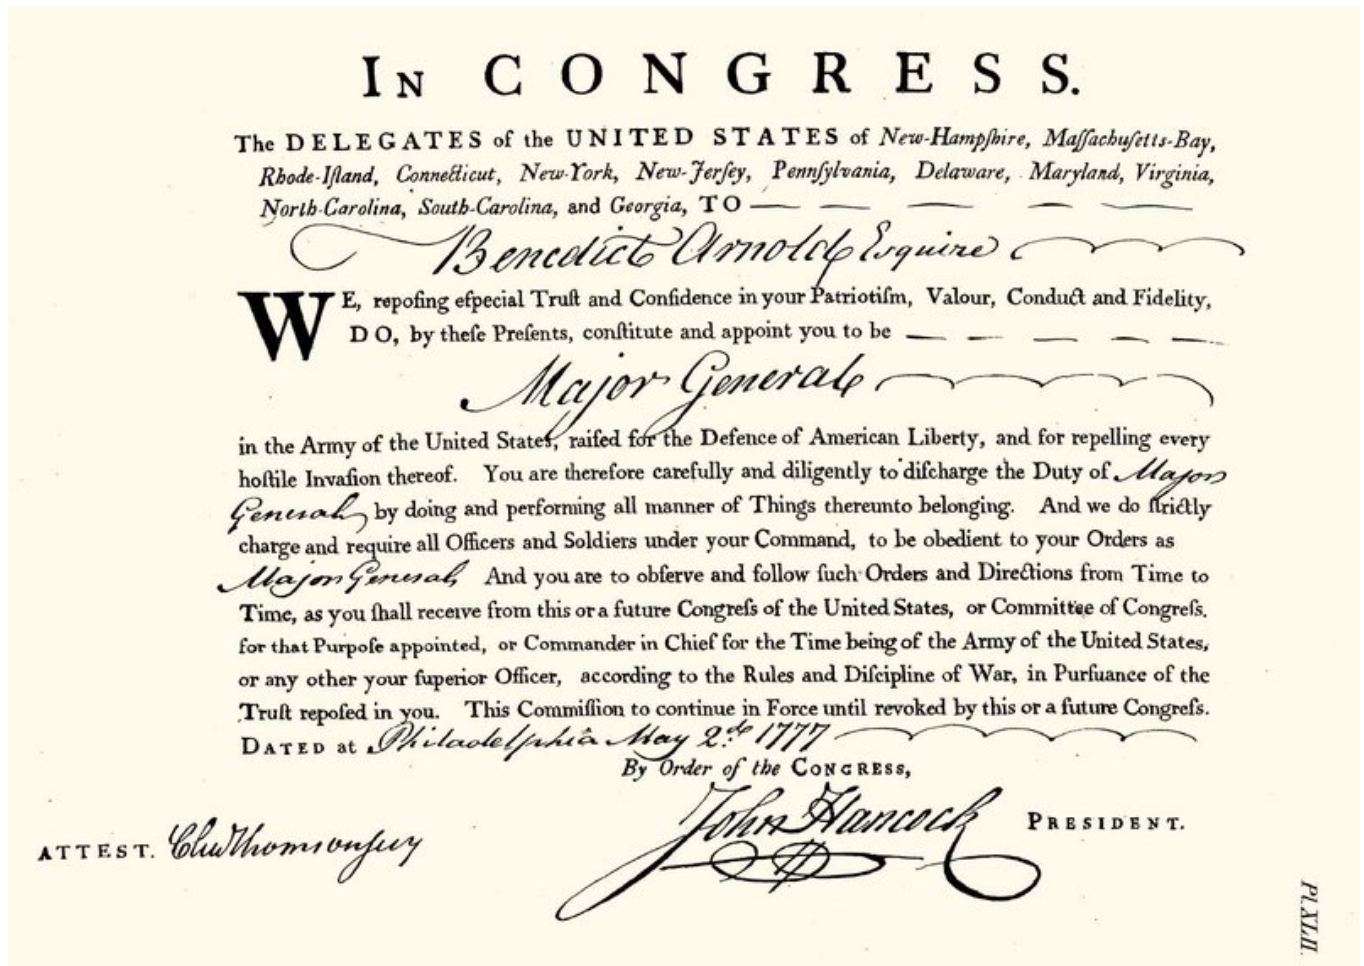 IN CONGRESS.
The DELEGATES of the UNITED STATES of New-Hampſhire, Maſſachuſetts-Bay,
Rhode-Iſland, Connecticut, New-York, New-Jerſey, Pennſylvania, Delaware, Maryland, Virginia,
North-Carolina, South-Carolina, and Georgia, TO
Benedict Arnold Esquire
WE, repoſing eſpecial Truſt and Confidence in your Patriotiſm, Valour, Conduct and Fidelity,
DO, by theſe Preſents, conſtitute and appoint you to be
Major General
in the Army of the United States, raiſed for the Defence of American Liberty, and for repelling every
hoſtile Invaſion thereof. You are therefore carefully and diligently to diſcharge the Duty of Major
General by doing and performing all manner of Things thereunto belonging. And we do ſtrictly
charge and require all Officers and Soldiers under your Command, to be obedient to your Orders as
Major General, And you are to obſerve and follow ſuch Orders and Directions from Time to
Time, as you ſhall receive from this or a future Congreſs of the United States, or Committee of Congreſs.
for that Purpoſe appointed, or Commander in Chief for the Time being of the Army of the United States,
or any other your ſuperior Officer, according to the Rules and Diſcipline of War, in Purſuance of the
Truſt repoſed in you. This Commiſſion to continue in Force until revoked by this or a future Congreſs.
DATED at Philadelphia May 2d 1777
By Order of the CONGRESS,
John Hancock PRESIDENT.
ATTEST. Cha Thomson secy
Pl. XLII.